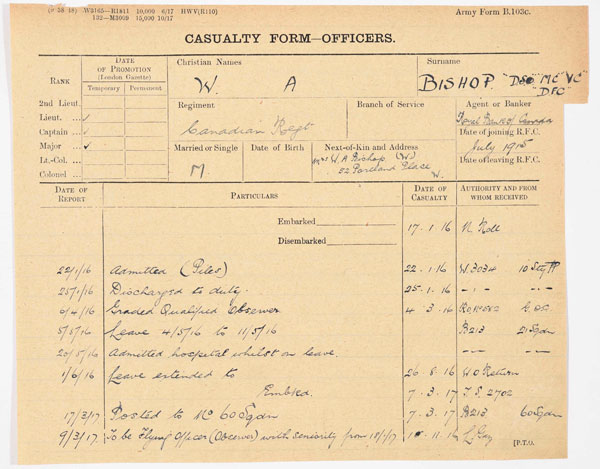 W3165—R1811 10,000 6/17 HWV(R110)
132—M3009 15,000 10/17
Army Form B.103c.
CASUALTY FORM—OFFICERS.
RANK
DATE OF PROMOTION (London Gazette)
Temporary Permanent
2nd Lieut.
Lieut. ... ✓
Captain ... ✓
Major ... ✓
Lt.-Col. ...
Colonel ...
Christian Names
W. A
Surname
BISHOP. "DSO" MC "VC"
"DFC"
Regiment
Canadian Regt
Branch of Service
Agent or Banker
Royal Bank of Canada
Date of joining R.F.C.
July 1915
Date of leaving R.F.C.
Married or Single
M.
Date of Birth
Next-of-Kin and Address
Mrs W. A Bishop (W)
52 Portland Place
W.
DATE OF REPORT PARTICULARS DATE OF CASUALTY AUTHORITY AND FROM WHOM RECEIVED
Embarked 17.1.16 N. Roll
Disembarked
22/1/16 Admitted (Piles) 22.1.16 W.3034
25/1/16 Discharged to duty. 25.1.16 – – –
6/4/16 Graded Qualified Observer 4.3.16
5/5/16 Leave 4/5/16 to 11/5/16 B213 21 Sqdn
20/5/16 Admitted hospital whilst on leave. – – –
1/6/16 Leave extended to 26.8.16 W O Return
Embked. 7.3.17 F.S. 2702
17/3/17 Posted to No 60 Sqdn 7.3.17 B213 60 Sqdn
9/3/17. To be Flying Officer (Observer) with seniority from 11.16 L. Gaz
[P.T.O.